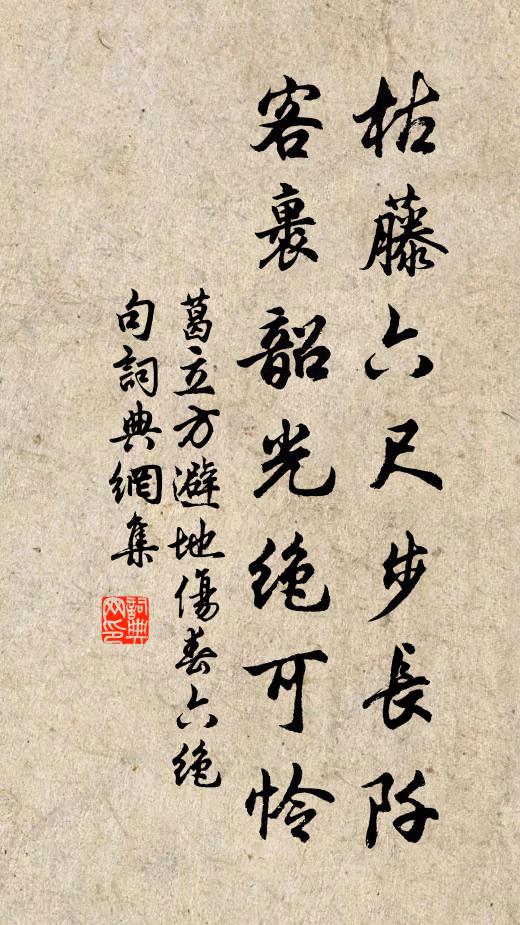 枯藤六尺步長阡
客裏韶光絶可怜
葛立方避地傷春六絶
句詞典網集
詞典網印